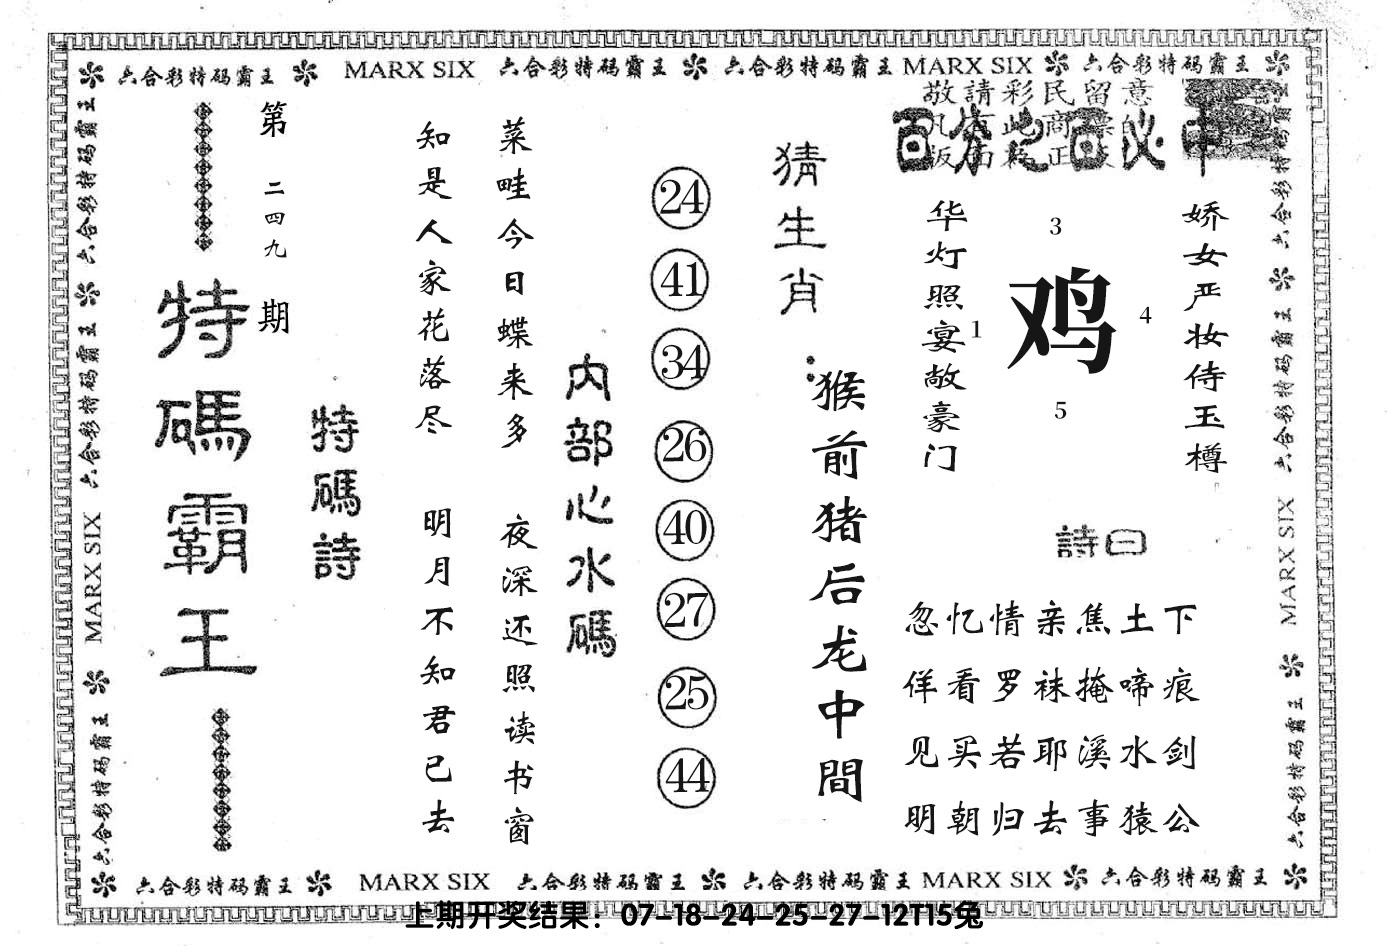 六合彩特码霸王 MARX SIX 六合彩特码霸王 六合彩特码霸王 MARX SIX 六合彩特码霸王
敬請彩民留意
百分之百必中
娇女严妆侍玉樽
3
鸡
1
4
5
华灯照宴敞豪门
詩曰
忽忆情亲焦土下
佯看罗袜掩啼痕
见买若耶溪水剑
明朝归去事猿公
猜生肖：
猴前猪后龙中間
24
41
34
26
40
27
25
44
内部心水碼
菜畦今日蝶来多 夜深还照读书窗
知是人家花落尽 明月不知君已去
特碼詩
第二四九期
特碼霸王
六合彩特码霸王
六合彩特码霸王
MARX SIX
六合彩特码霸王
六合彩特码霸王
六合彩特码霸王
MARX SIX
六合彩特码霸王
六合彩特码霸王 MARX SIX 六合彩特码霸王 六合彩特码霸王 MARX SIX 六合彩特码霸王
上期开奖结果：07-18-24-25-27-12T15兔